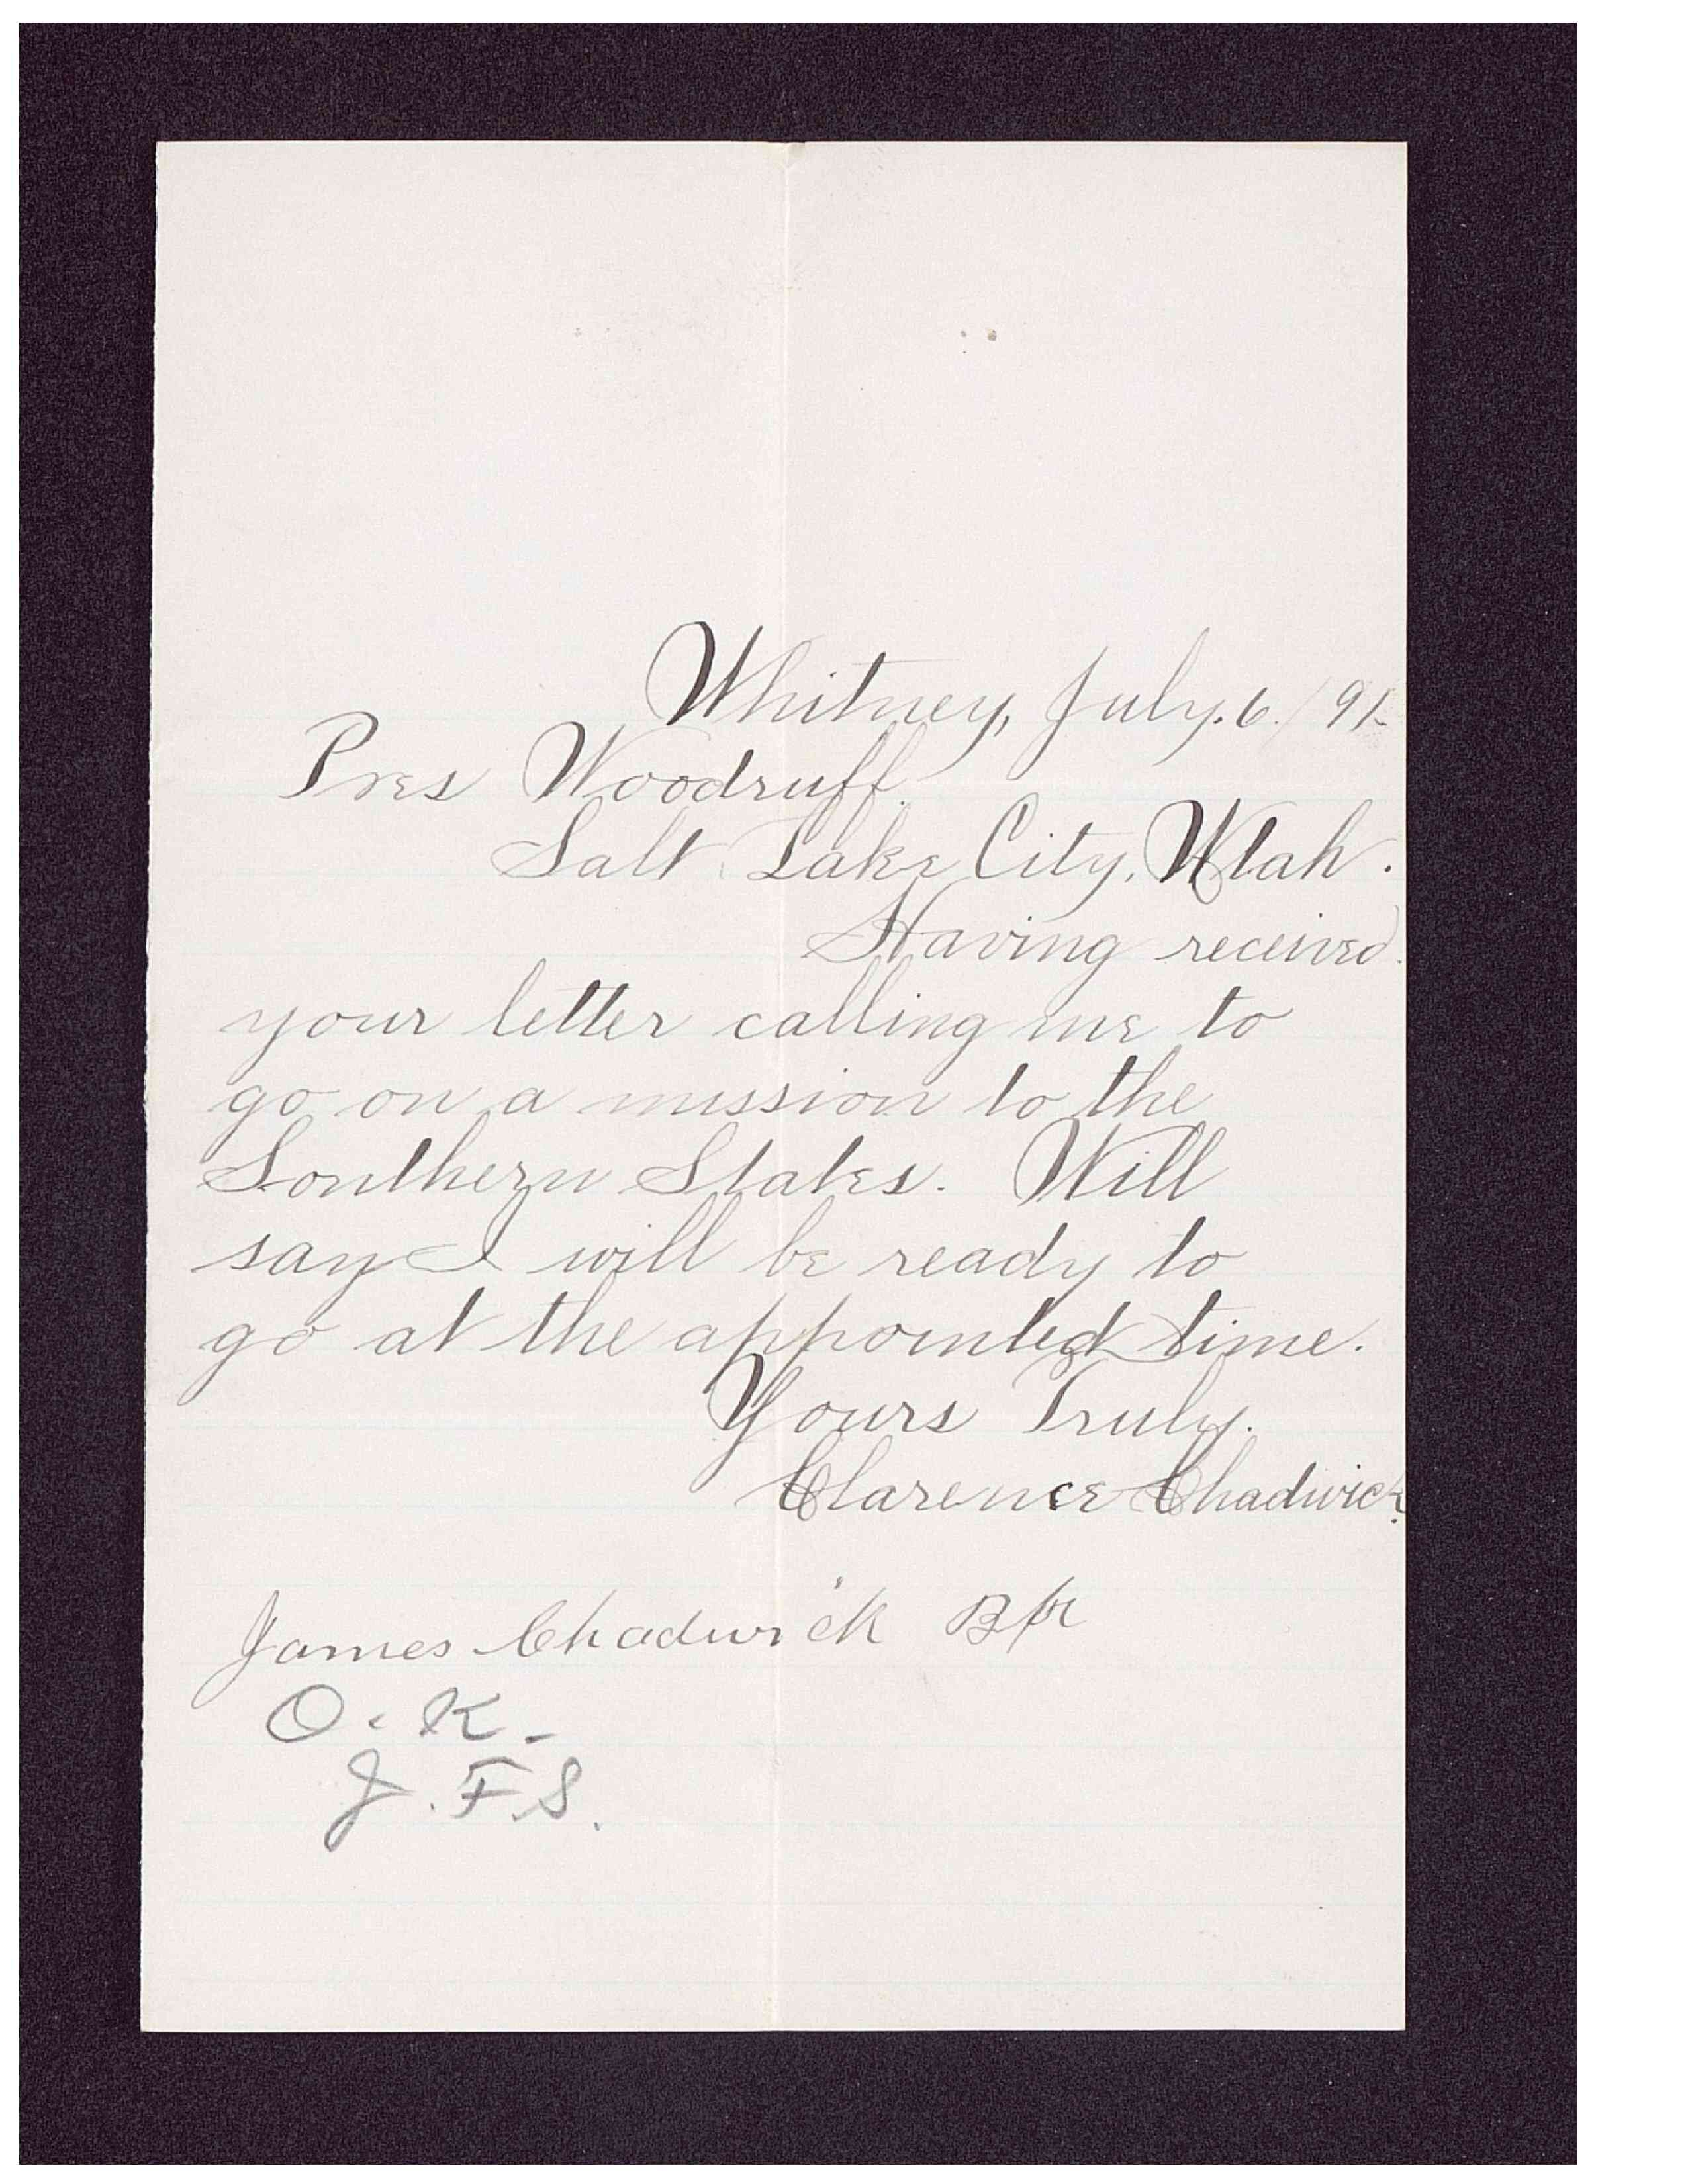 Whitney, July. 6. / 91.
Pres Woodruff
Salt Lake City, Utah.
Having received
your letter calling me to
go on a mission to the
Southern States. Will
say I will be ready to
go at the appointed time.
Yours Truly.
Clarence Chadwick.
James Chadwick Bp
O. K.
J. F. S.